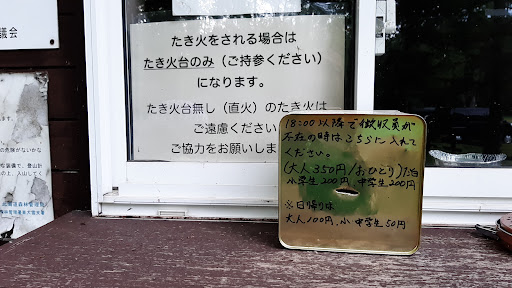 議会
たき火をされる場合は
たき火台のみ（ご持参ください）
になります。
たき火台無し（直火）のたき火は
ご遠慮ください
ご協力をお願いしま
18:00以降で徴収員が
不在の時はこちらに入れて
ください。
(大人350円/おひとり)1泊
小学生200円 中学生200円
※日帰りは
大人100円、小・中学生50円